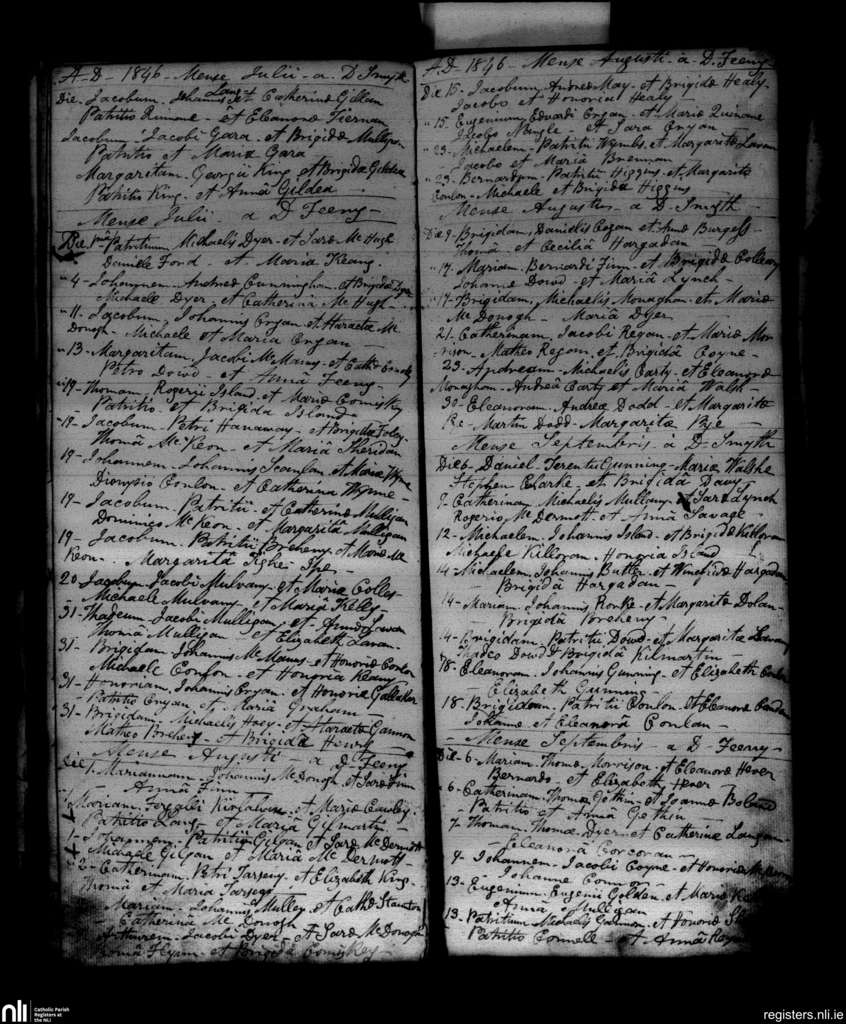 A-D- 1846 - Mense Julii - a - D Smyth
Die - Jacobum Johannis Lang et Catherinæ Gillan
Patritio Ruinane - et Eleanora Tiernan
Jacobum - Jacobi Gara - et Brigidæ Mulligan
Patritio et Maria Gara
Margaritam. Georgii King et Brigidæ Gildea
Patritio King - et Annâ Gildea
Mense Julii - a D Feeny -
Die 1mâ Patritium Michaelis Dyer - et Saræ McHugh
Daniele Ford - et - Maria Keany
" 4 - Johannem - Andreæ Cunningham - et Brigidæ Dyer
Michaele Dyer - et Catherina McHugh
" 11 - Jacobum, Johannis Cryan - et Mc
Donogh - Michaele et Maria Cryan
" 13 - Margaritam, Jacobi McManus - et Cath
Petro Dowd - et Annâ Feeny -
" 19 - Thomam, Rogerii Island - et Mariæ Comisky
Patritio - et Brigida Island
" 19 - Jacobum Petri Hanaway - et Brigidæ Foley -
Thomâ McKeon - et Mariâ Sheridan
19 - Johannem - Johannis Scanlan et Mariæ Wynne
Dionysio Conlon - et Catherina Wynne -
19 - Jacobum - Patritii - et Catherinæ Mulligan
Dominico McKeon - et Margaritâ Mulligan
19 - Jacobum - Patritii Breheny - et Mariæ Mc
Keon - Margaritâ Tighe
20 Jacobum Jacobi Mulvany - et Mariæ Colles
Michaele Mulvany - et Mariâ Kelly -
31 - Thadeum - Jacobi Mulligan - et - Annæ Lavan
Thomâ Mulligan - et Elizabeth Lavan -
31 - Brigidam, Johannis McManus - et Honoriæ Conlon
Michaele Conlon - et Honoria Keany
31 - Honoriam, Johannis Cryan - et Honoriæ Gallaher
Patritio Cryan - et Maria Graham
31 - Brigidam - Michaelis Hoey - et Gannon
Matheo Breheny - et Brigidâ Henry
Mense Augusti - a D - Feeny
Die 1. Mariannam - Johannis McDonogh - et Saræ Finn
- Annâ Finn -
Mariam - et Mariæ
Patritio Lang - et Mariâ Gilmartin -
1 - Johannem - Patritii Gilgan - et Saræ McDermott
Michaele Gilgan - et Maria McDermott -
" 2 - Catherinam - Petri Tarpey - et Elizabeth King -
Thomâ et Maria Tarpey
Mariam - Johannis Mulley - et Cath Staunton
Catherina McDonogh
Jacobi Dyer - et Saræ McDonogh
Thomâ Flynn - et Brigida Comiskey -
A-D - 1846 - Mense Augusti - a - D. Feeny
Die 15 - Jacobum, Andreæ May - et Brigidæ Healy
Jacobo et Honoria Healy -
" 15 - Eugenium, Edvardi Cryan - et Mariæ Quinane
Jacobo Nangle - et Sara Cryan
" 23 - Michaelem - Patritii Wymbs - et Margaritæ Lavan
Jacobo et Maria Brennan
" 23 - Bernardum - Patritii Higgins - et Margaritæ
Conlon - Michaele et Brigida Higgins
Mense Augustus - a D - Smyth -
Die 9 - Brigidam, Danielis Cogan - et Annæ Burgess -
Thomâ et Ceciliâ Hargadan
" 17 - Mariam - Bernardi Finn - et Brigidæ Colleary
Johanne Dowd - et Mariâ Lynch -
" 17 - Brigidam, Michaelis Monaghan - et - Mariæ
McDonogh - Maria Dyer
21 - Catherinam, Jacobi Regan - et Mariæ Mor
rison. Matheo Regan, et Brigidâ Coyne -
23 - Andream - Michaelis Carty - et Eleanoræ
Monaghan - Andreâ Carty et Mariâ Walsh -
30 - Eleanoram - Andreæ Dodd - et Margaritæ
Rye - Martin Dodd - Margaritæ Rye -
Mense Septembris - a D - Smyth
Die 6 - Daniel - Terentii Gunning - Mariæ Walshe
Stephen Clarke - et Brigidâ Davy -
9 - Catherinam Michaelis Mullany - et Saræ Lynch
Rogerio McDermott - et Annâ Savage -
12 - Michaelem - Johannis Island - et Brigidæ Killoran
Michaele Killoran - Honoria Island
14 - Michaelem, Johannis Butler - et Winefridæ Hargadan
- Brigidâ Hargadan -
14 - Mariam - Johannis Rorke - et Margaritæ Dolan -
Brigidâ Breheny -
14 - Brigidam - Patritii Dowd - et Margaritæ
Thadeo Dowd & Brigidâ Kilmartin -
18 - Eleanoram - Johannis Gunning - et Elizabeth Conlon
- Elizabeth Gunning -
18 - Brigidam - Patritii Conlon - et Eleanoræ
Johanne et Eleanorâ Conlan -
- Mense Septembris - a D - Feeny -
Die - 6 - Mariam - Thomæ Morrison - et Eleanoræ Hever
Bernardo - et Elizabeth Hever
" 6 - Catherinam - Thomæ Gethin - et Joannæ Boland
- Patritio - et Annâ Gethin
7 - Thomam - Thomæ Dyer - et Catherinæ Langan
- Eleanorâ Corcoran -
9 - Johannem - Jacobi Coyne - et Honoriæ
Johanne Connor -
13 - Eugenium Eugenii Golden - et Mariæ
Annâ Mulligan
13 - Patritium Michaelis Gannon - et Honoriæ
Patritio Connell - et Annâ
nli
Catholic Parish
Registers at
the NLI
registers.nli.ie